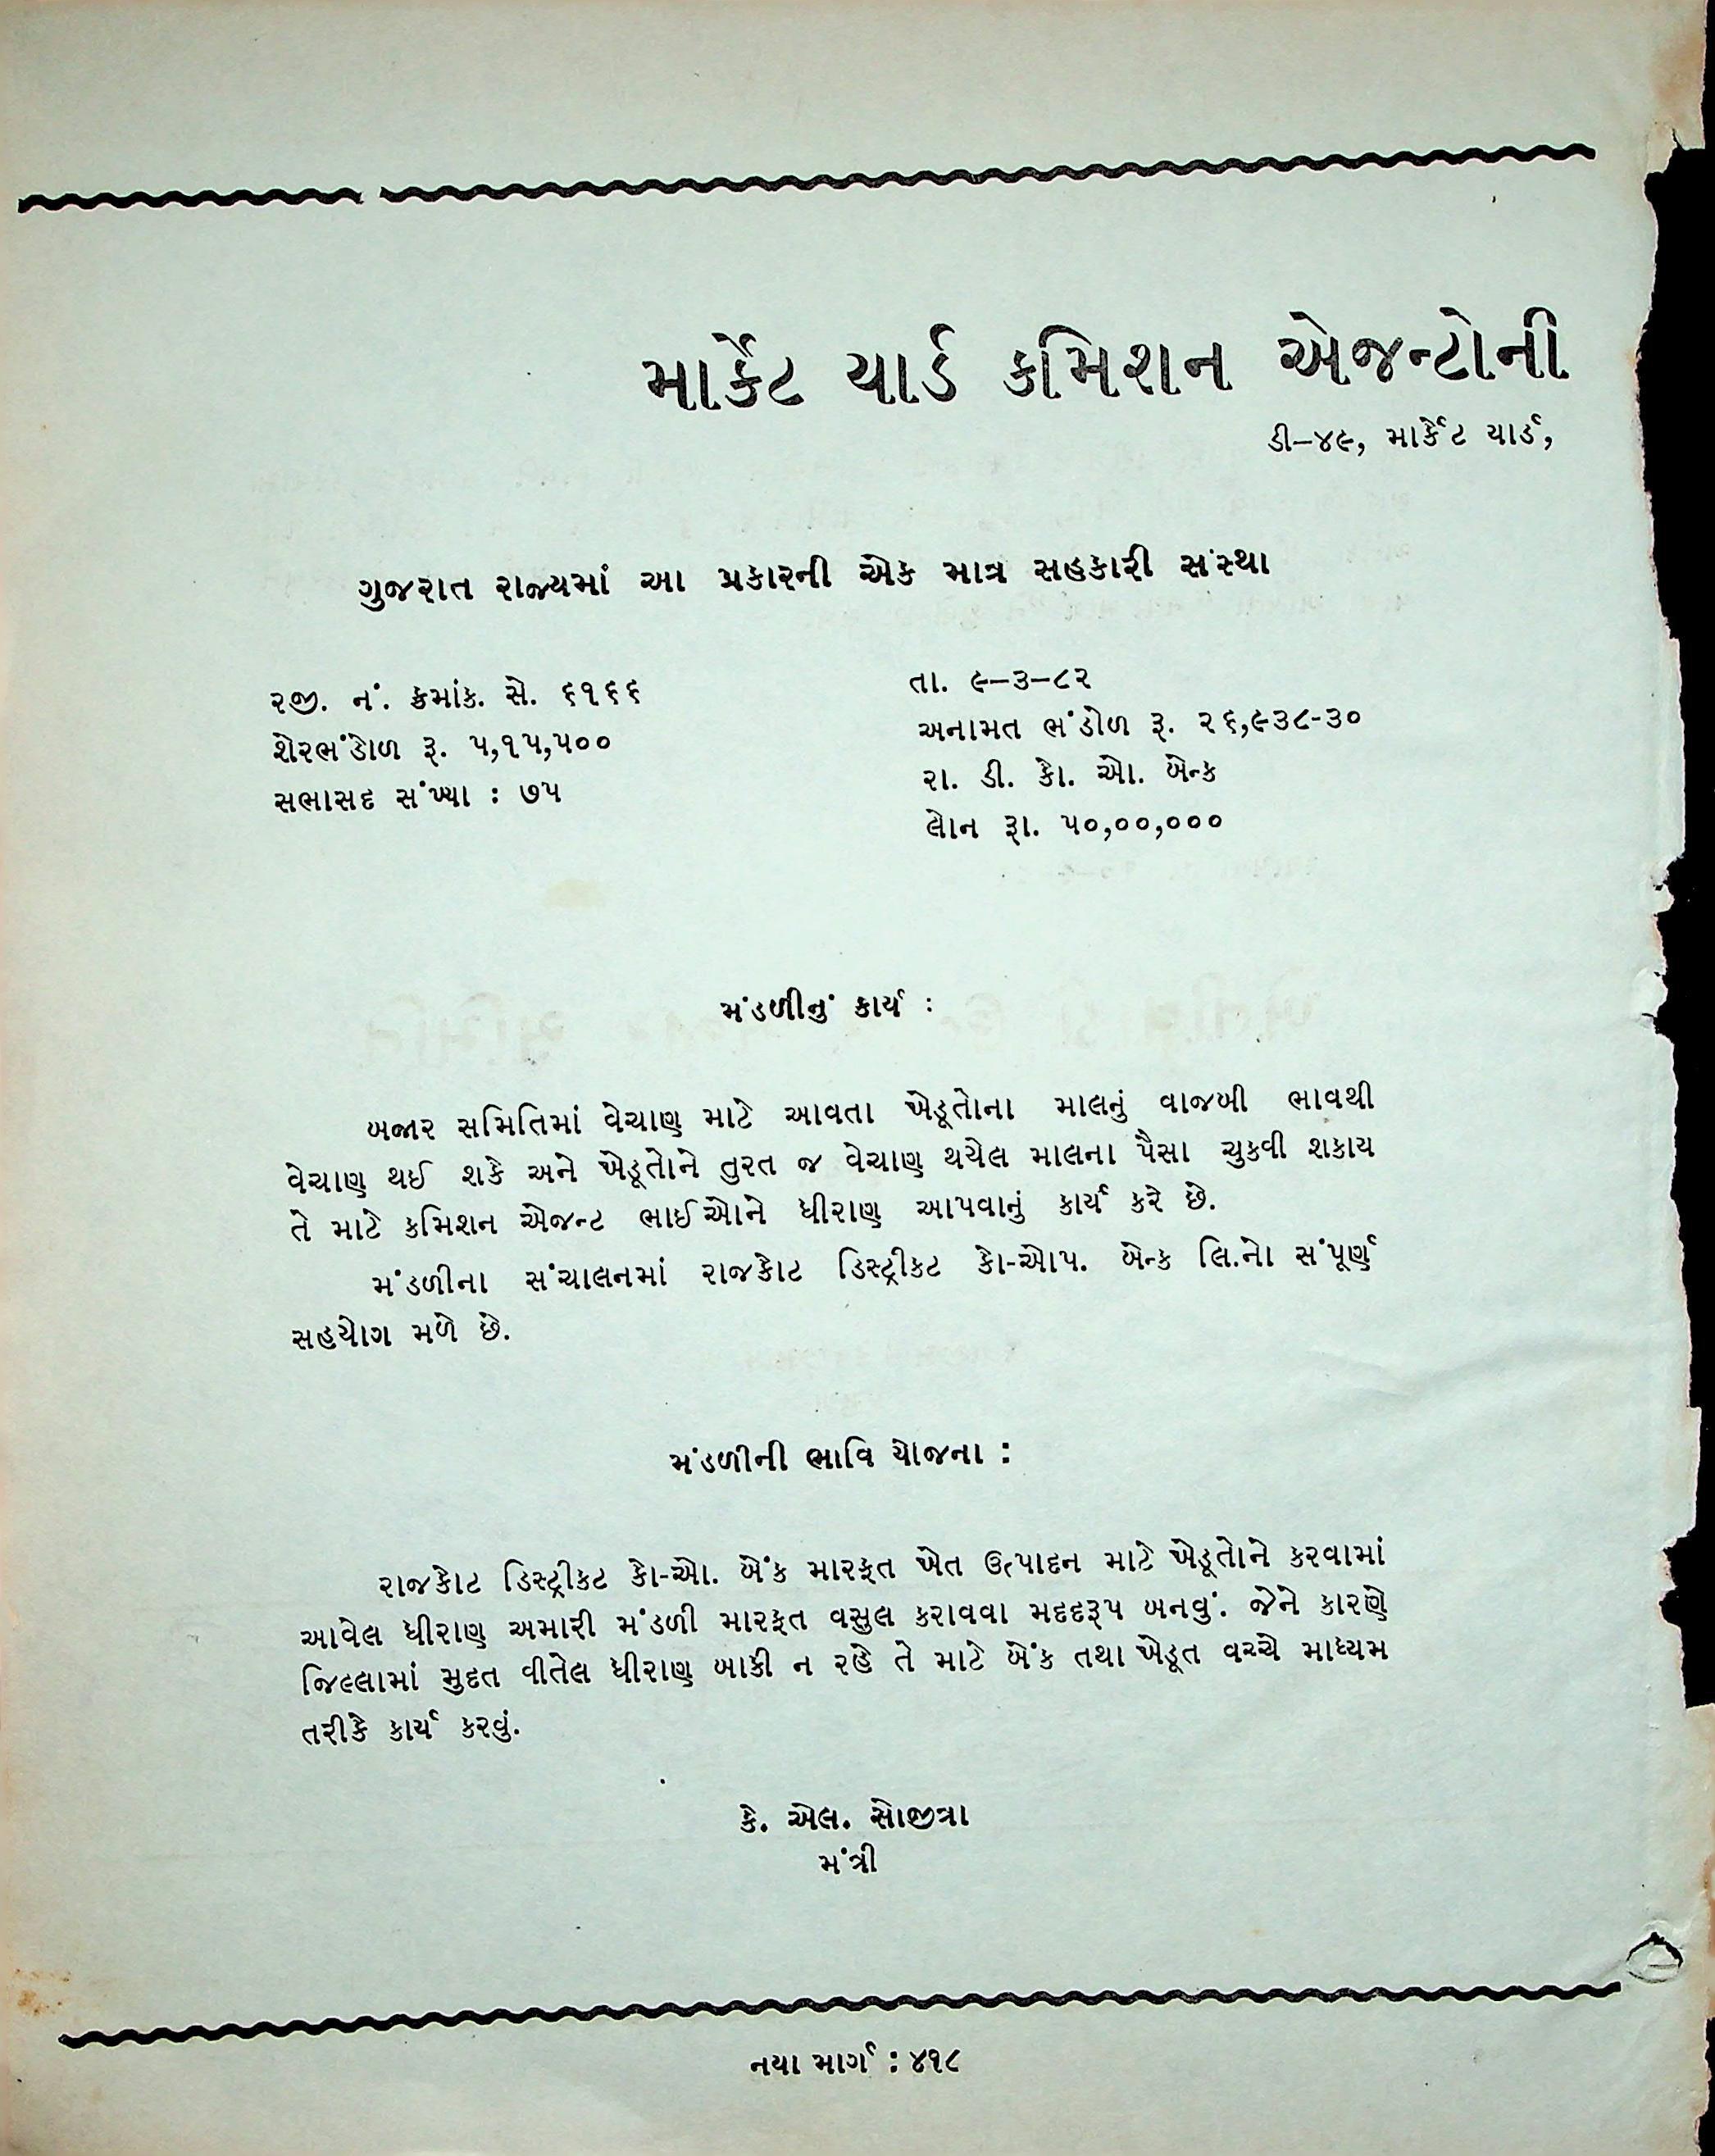 માર્કેટ યાર્ડ કમિશન એજન્ટોની
ડી–૪૯, માર્કેટ યાર્ડ,
ગુજરાત રાજ્યમાં આ પ્રકારની એક માત્ર સહકારી સંસ્થા
રજી. નં. ક્રમાંક. સે. ૬૧૬૬
શેરભંડોળ રૂ. ૫,૧૫,૫૦૦
સભાસદ સંખ્યા : ૭૫
તા. ૯–૩–૮૨
અનામત ભંડોળ રૂ. ૨૬,૯૩૮-૩૦
રા. ડી. કો. ઓ. બેન્ક
લોન રૂા. ૫૦,૦૦,૦૦૦
મંડળીનું કાર્ય :
બજાર સમિતિમાં વેચાણ માટે આવતા ખેડૂતોના માલનું વાજબી ભાવથી
વેચાણ થઈ શકે અને ખેડૂતોને તુરત જ વેચાણ થયેલ માલના પૈસા ચુકવી શકાય
તે માટે કમિશન એજન્ટ ભાઈઓને ધીરાણ આપવાનું કાર્ય કરે છે.
મંડળીના સંચાલનમાં રાજકોટ ડિસ્ટ્રીકટ કો-ઓપ. બેન્ક લિ.નો સંપૂર્ણ
સહયોગ મળે છે.
મંડળીની ભાવિ યોજના :
રાજકોટ ડિસ્ટ્રીકટ કો-ઓ. બેંક મારફત ખેત ઉત્પાદન માટે ખેડૂતોને કરવામાં
આવેલ ધીરાણ અમારી મંડળી મારફત વસુલ કરાવવા મદદરૂપ બનવું. જેને કારણે
જિલ્લામાં મુદત વીતેલ ધીરાણ બાકી ન રહે તે માટે બેંક તથા ખેડૂત વચ્ચે માધ્યમ
તરીકે કાર્ય કરવું.
કે. એલ. સોજીત્રા
મંત્રી
નયા માર્ગ : ૪૧૮